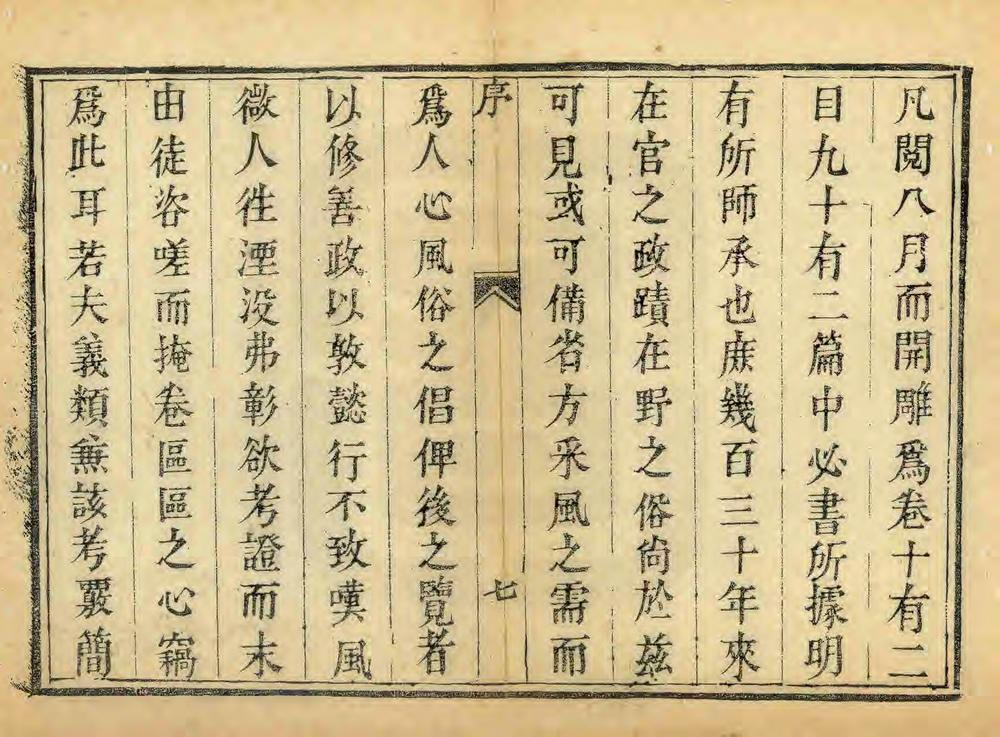 凡閱八月而開雕爲卷十有二
目九十有二篇中必書所據明
有所師承也庶幾百三十年來
在官之政蹟在野之俗尙於茲
可見或可備省方采風之需而
序 七
爲人心風俗之倡俾後之覽者
以修善政以敦懿行不致嘆風
微人徃湮没弗彰欲考證而末
由徒咨嗟而掩卷區區之心竊
爲此耳若夫義類無該考覈簡